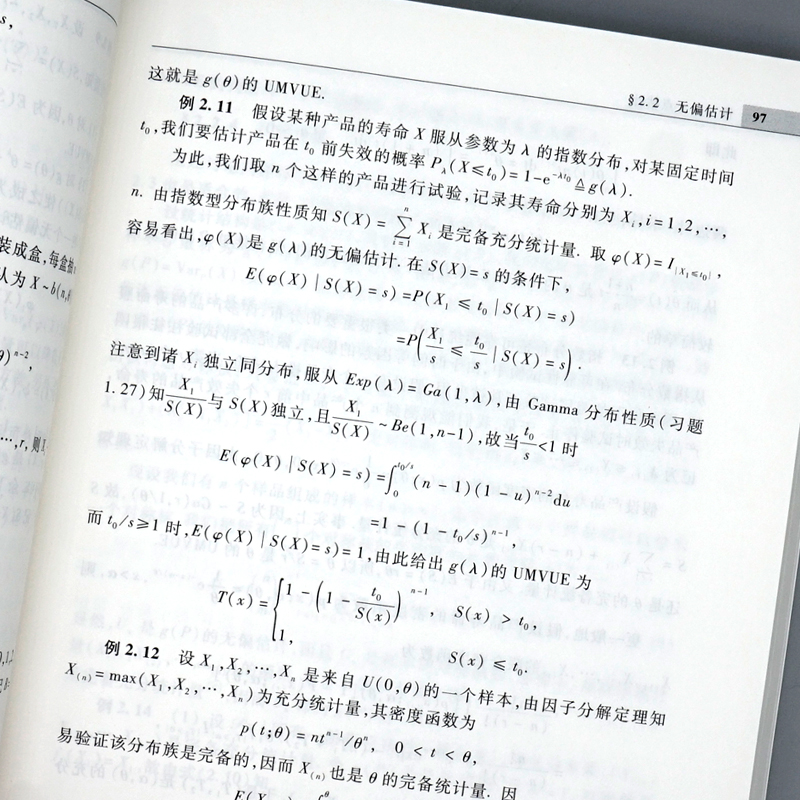 §2.2 无偏估计 97
这就是 g(θ)的 UMVUE.
例 2.11 假设某种产品的寿命 X 服从参数为 λ 的指数分布,对某固定时间
t₀,我们要估计产品在 t₀ 前失效的概率 P_λ(X≤t₀)=1-e^{-λt₀}≜g(λ).
为此,我们取 n 个这样的产品进行试验,记录其寿命分别为 X_i,i=1,2,⋯,
n. 由指数型分布族性质知 S(X)=∑_{i=1}^{n} X_i 是完备充分统计量. 取 φ(X)=I_{|X₁≤t₀|},
容易看出,φ(X)是 g(λ)的无偏估计. 在 S(X)=s 的条件下,
E(φ(X)|S(X)=s)=P(X₁≤t₀|S(X)=s)
=P(X₁/s≤t₀/s|S(X)=s).
注意到诸 X_i 独立同分布,服从 Exp(λ)=Ga(1,λ),由 Gamma 分布性质(习题
1.27)知 X₁/S(X) 与 S(X)独立,且 X₁/S(X) ~Be(1,n-1),故当 t₀/s<1 时
E(φ(X)|S(X)=s)=∫₀^{t₀/s}(n-1)(1-u)^{n-2}du
=1-(1-t₀/s)^{n-1},
而 t₀/s≥1 时,E(φ(X)|S(X)=s)=1,由此给出 g(λ)的 UMVUE 为
T(x)={1-(1-t₀/S(x))^{n-1}, S(x)>t₀,
1, S(x)≤t₀.
例 2.12 设 X₁,X₂,⋯,X_n 是来自 U(0,θ)的一个样本,由因子分解定理知
X_{(n)}=max(X₁,X₂,⋯,X_n)为充分统计量,其密度函数为
p(t;θ)=nt^{n-1}/θ^n, 0<t<θ,
易验证该分布族是完备的,因而 X_{(n)}也是 θ 的完备统计量. 因
s,
装成盒,每盒
认为 X~b(n,
)^{n-2},
⋯,r,则